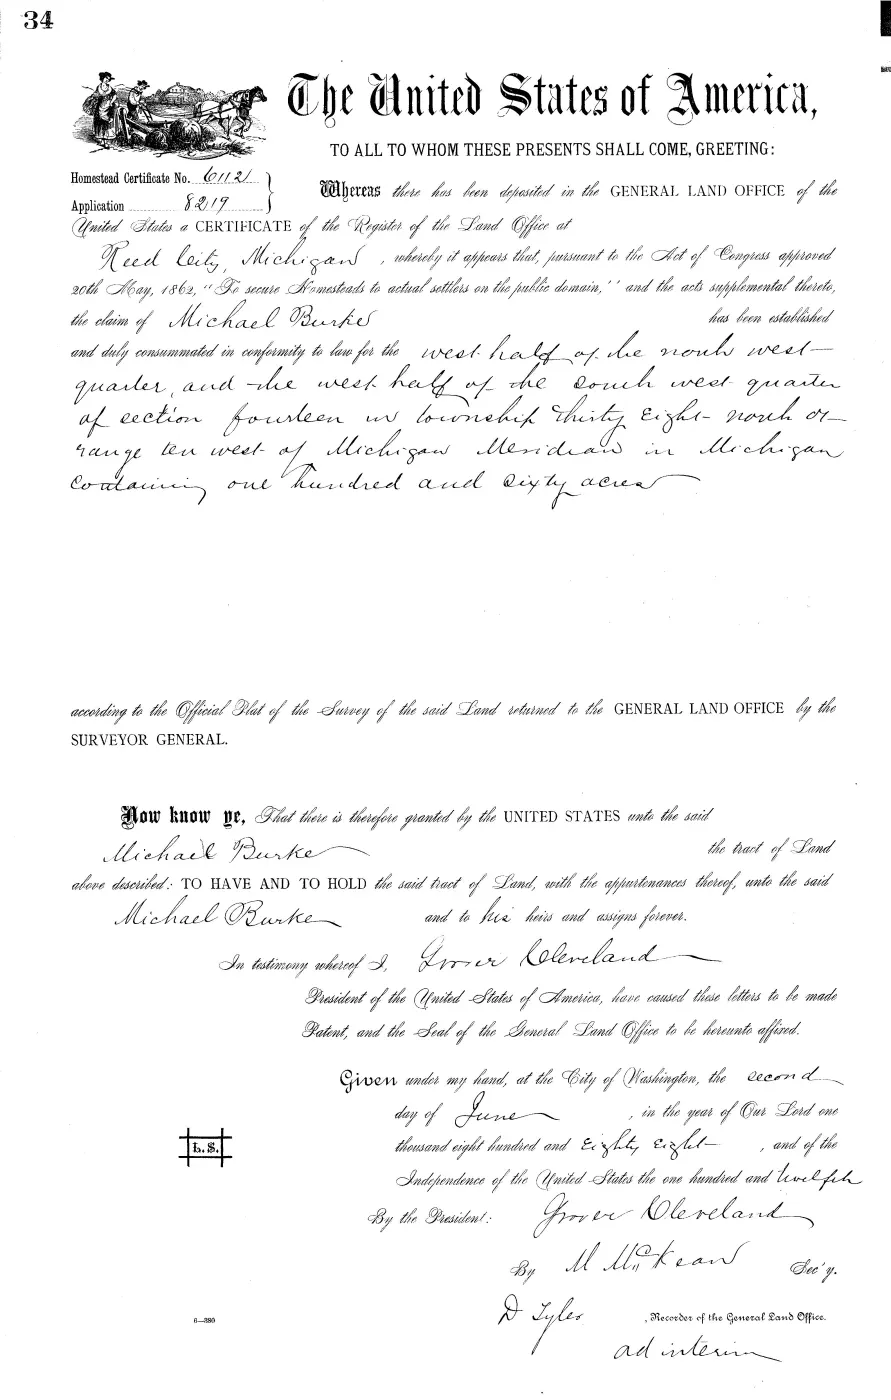 34
The United States of America,
TO ALL TO WHOM THESE PRESENTS SHALL COME, GREETING:
Homestead Certificate No. 6112
Application 8219
Whereas there has been deposited in the GENERAL LAND OFFICE of the
United States a CERTIFICATE of the Register of the Land Office at
Reed City, Michigan, whereby it appears that, pursuant to the Act of Congress approved
20th May, 1862, "To secure Homesteads to actual settlers on the public domain," and the acts supplemental thereto,
the claim of Michael Burke has been established
and duly consummated in conformity to law for the west half of the north west
quarter, and the west half of the south west quarter
of section fourteen in township thirty eight north of
range ten west of Michigan Meridian in Michigan
containing one hundred and sixty acres
according to the Official Plat of the Survey of the said Land returned to the GENERAL LAND OFFICE by the
SURVEYOR GENERAL.
Now know ye, That there is therefore granted by the UNITED STATES unto the said
Michael Burke the tract of Land
above described: TO HAVE AND TO HOLD the said tract of Land, with the appurtenances thereof, unto the said
Michael Burke and to his heirs and assigns forever.
In testimony whereof I, Grover Cleveland
President of the United States of America, have caused these letters to be made
Patent, and the Seal of the General Land Office to be hereunto affixed.
Given under my hand, at the City of Washington, the second
day of June, in the year of Our Lord one
thousand eight hundred and Eighty Eight, and of the
L.S.
Independence of the United States the one hundred and twelfth
By the President: Grover Cleveland
By M McKean Sec'y.
6—380
D Tyler, Recorder of the General Land Office.
ad interim